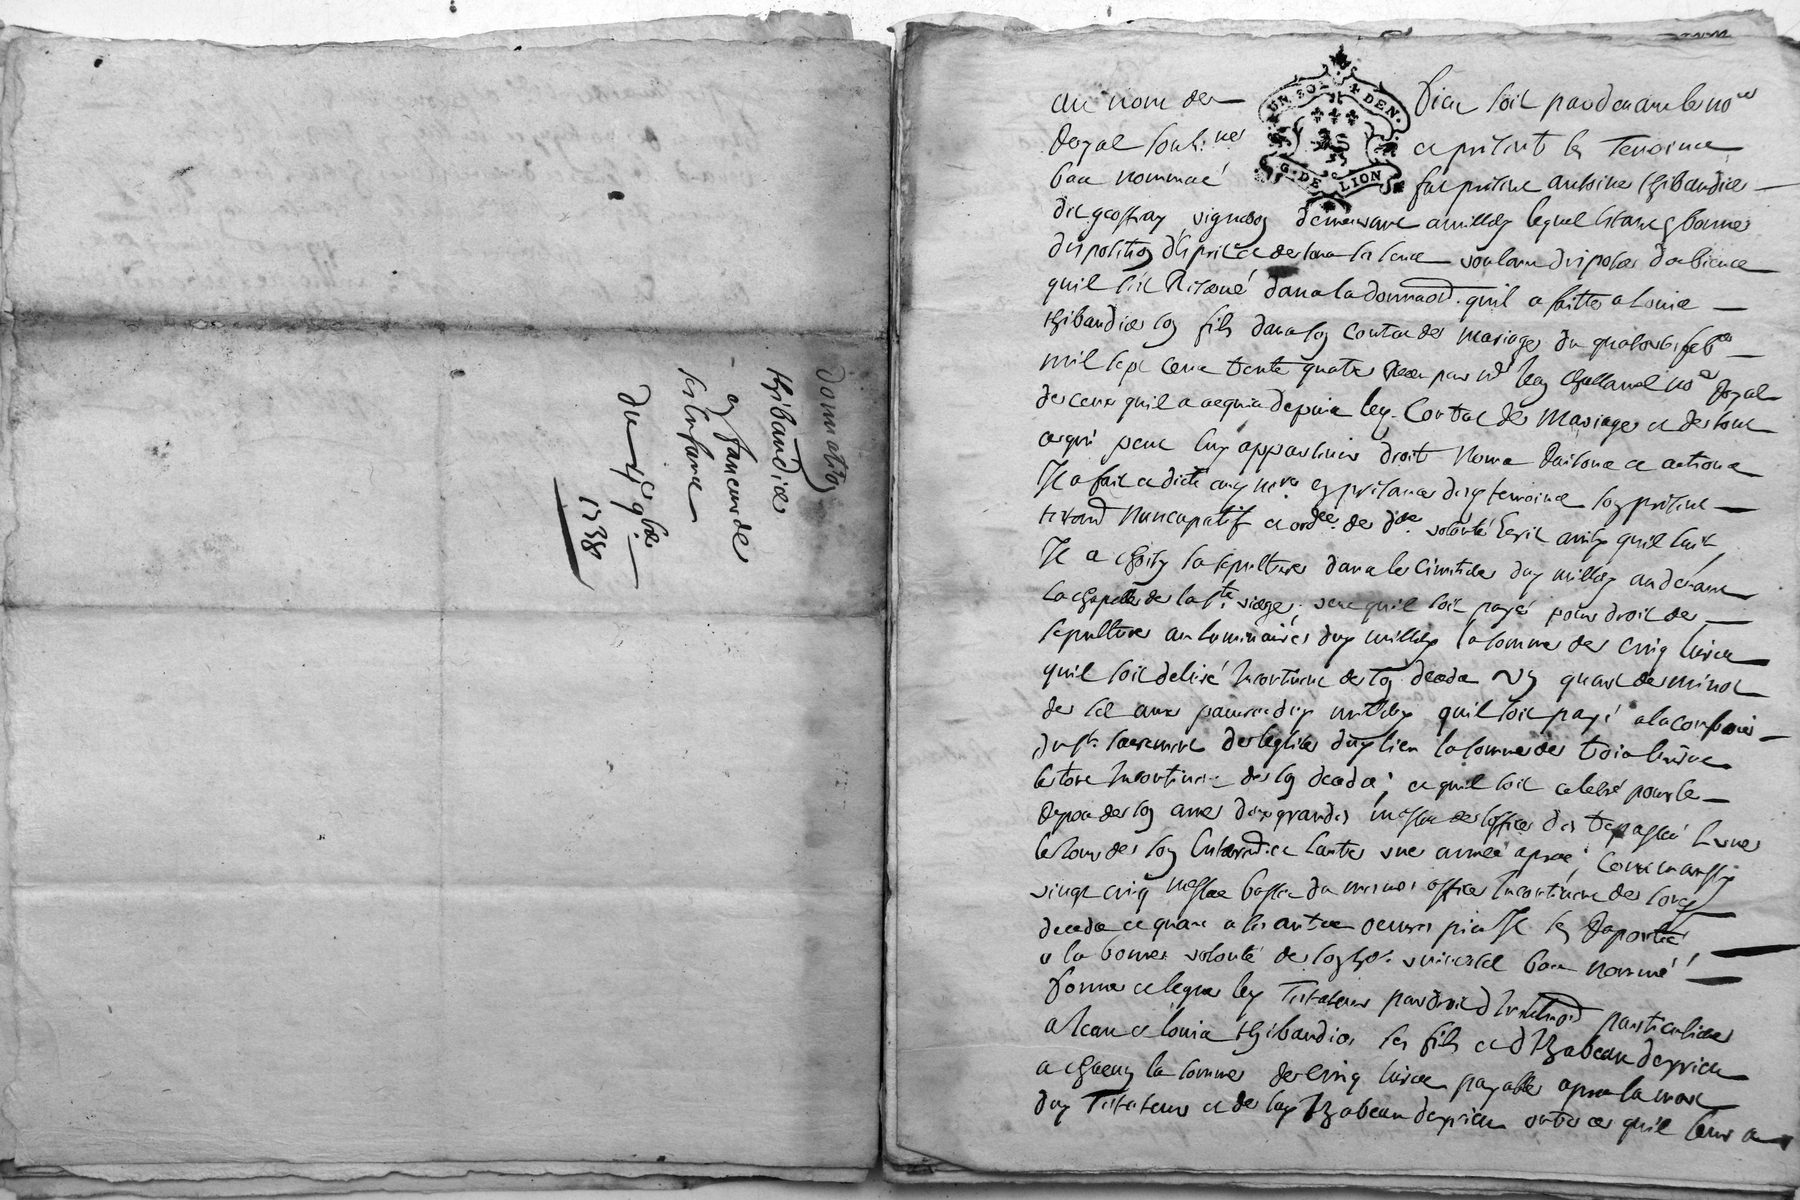 donnation
thibaudier
en faueur de
ses enfans
du 4e 9bre
1738
UN SOL 4 DEN.
G. DE LION
au nom de Dieu soit pardeuant le nore
Royal soub.né et present les Temoins
bas nommés fut present antoine thibaudier
dit geoffray vigneron demeurant a millery lequel estant en bonne
disposition d'esprit et de tous ses sens voulant disposer des biens
quil s'est Reserué dans la donnaon. quil a faitte a Louis
thibaudier son fils dans son Contrat de mariage du quatorze febr
mil sept cens trente quatre Receu par me no.re Royal
de ceux quil a acquis depuis led. Contrat de Mariage et de tout
ce qui peut luy appartenir droits Noms Raisons et actions
Il a fait et dicté aud no.re en presence desd temoins son present
testam.t Nuncupatif et ord.ce de d.re volonté Escrit ainsy quil suit
Il a choisy sa sepulture dans le Cimetiere dud millery au deuant
la chapelle de la s.te vierge, veut quil soit payé pour droit de
sepulture au luminaire dud millery la somme de cinq liures
quil soit deliuré Incontinent des son deceds Un quart de minot
de sel aux pauures dud millery quil soit payé a la confrerie
du st. sacrement de leglise dud lieu la somme de trois liures
le tout Incontinent des son deceds; et quil soit celebré pour le
Repos de son ame deux grandes messes de loffice des trepassés Lune
le Jour de son Enterrem.t et lautre une année apres; Comm aussy
vingt cinq messes basses du mesme office Incontinent des son
deceds et quant a ses autres oeuures pies Il les Raportes
a la bonne volonté de son her. vniuersel bas nommé
Donne et legue led Testateur par droit d'Institution particuliere
a Jean et louis thibaudier ses fils et d'Izabeau
a chacun la somme de Cinq liures payable apres la mort
dud Testateur et de lad Izabeau outre ce quil leur a